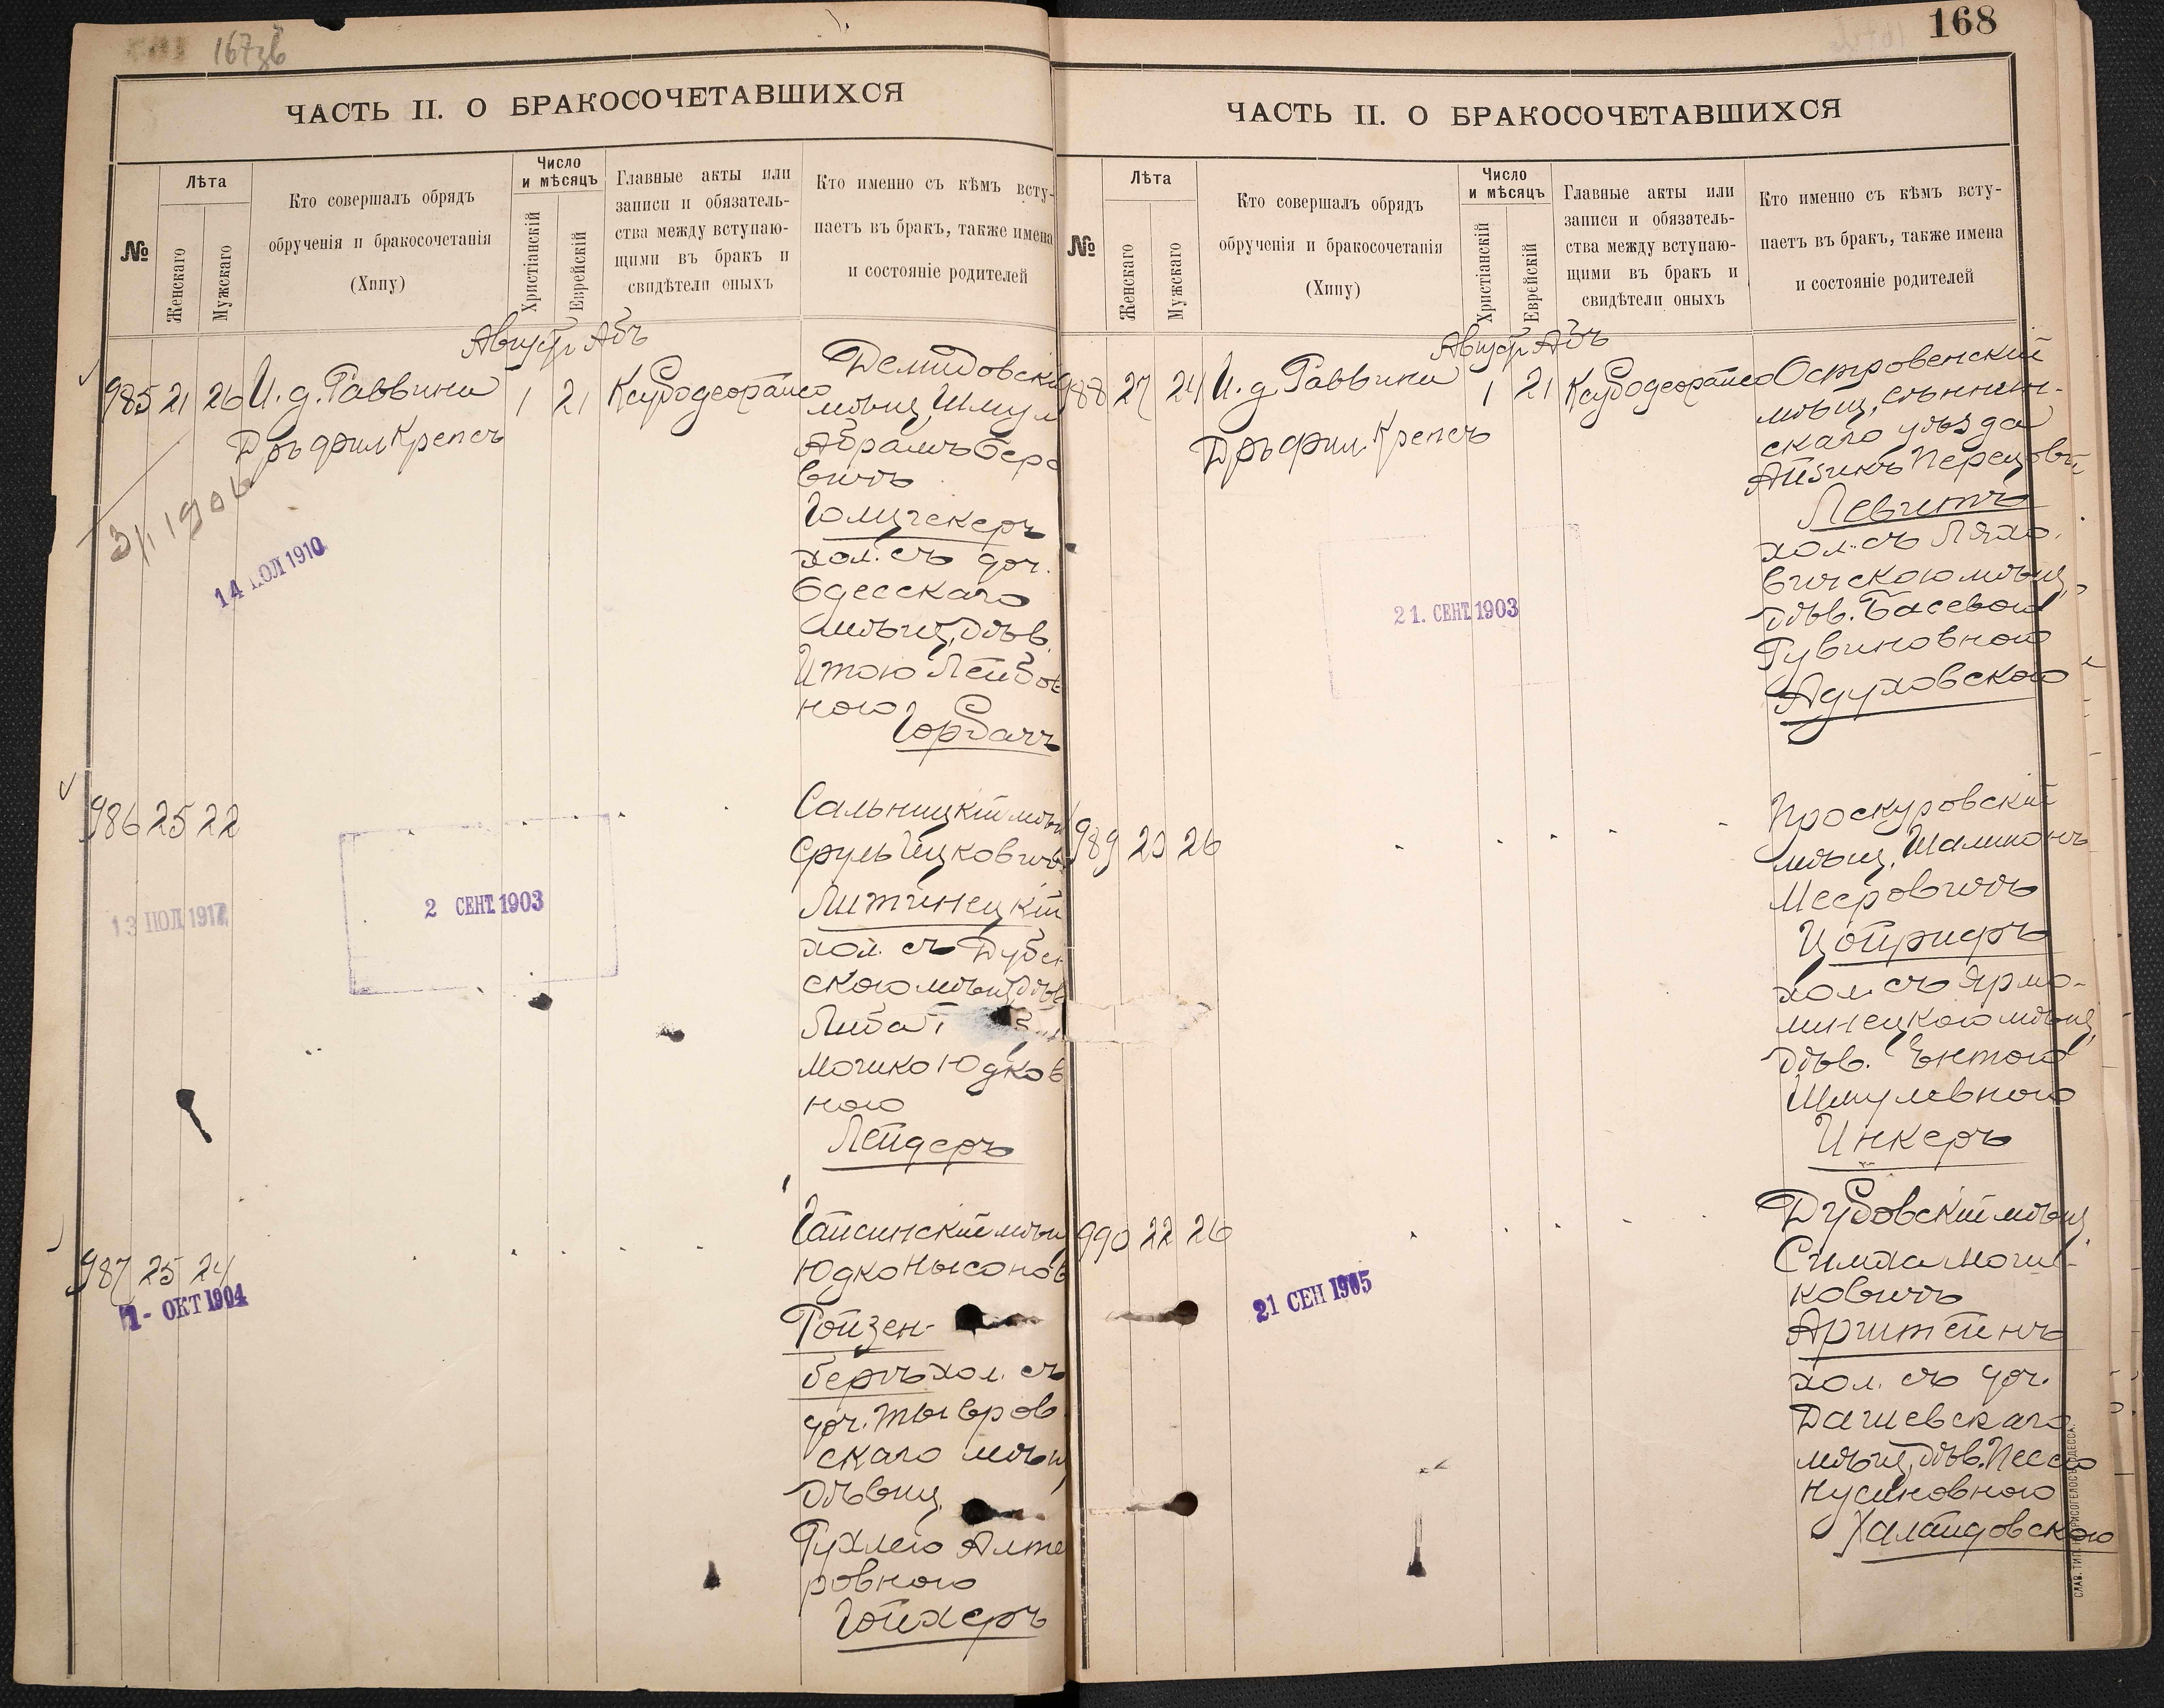 167зв
ЧАСТЬ II. О БРАКОСОЧЕТАВШИХСЯ
№
Лѣта
Женскаго
Мужскаго
Кто совершалъ обрядъ
обрученія и бракосочетанія
(Хипу)
Число
и мѣсяцъ
Христіанскій
Еврейскій
Главные акты или
записи и обязатель-
ства между вступаю-
щими въ бракъ и
свидѣтели оныхъ
Кто именно съ кѣмъ всту-
паетъ въ бракъ, также имена
и состояніе родителей
Август Абъ
985 21 26 И. д. Раввина 1 21
Дръ фил Крепсъ
Демидовскі
мѣщ. Шмул
Абрамъ Беро
вичъ
Голцгекеръ
хол. съ доч.
Одесскаго
мѣщ. дѣв.
Итою Лейбов
ною
Горбачъ
14 ИОЛ 1910
986 25 22
Сальницкій мѣщ
Сруль Ицковичъ
Литинецкій
хол. съ Дубен
скою мѣщ. дѣв
Либа
Мошко Юдков
ною
Лейдеръ
2 СЕНТ. 1903
13 ИОЛ 1917
987 25 24
Гайсинскій мѣщ
Юдко Нысонов
Ройзен-
бергъ хол. съ
доч. Тывров
скаго мѣщ
дѣвиц.
Рухлею Алте
ровною
Гойхеръ
1 - ОКТ 1904
168
ЧАСТЬ II. О БРАКОСОЧЕТАВШИХСЯ
№
Лѣта
Женскаго
Мужскаго
Кто совершалъ обрядъ
обрученія и бракосочетанія
(Хипу)
Число
и мѣсяцъ
Христіанскій
Еврейскій
Главные акты или
записи и обязатель-
ства между вступаю-
щими въ бракъ и
свидѣтели оныхъ
Кто именно съ кѣмъ всту-
паетъ въ бракъ, также имена
и состояніе родителей
Август Абъ
988 27 24 И. д Раввина 1 21
Дръ фил. Крепсъ
Островенскій
мѣщ. Сѣннен-
скаго уѣзда
Айзикъ Перецови
Левитъ
хол. съ Ляхо-
вичскою мѣщ.
дѣв. Басевою
Рувиновною
Адуховскою
21. СЕНТ. 1903
989 23 26
Проскуровскій
мѣщ. Шалмонъ
Мееровичъ
Цойрифъ
хол. съ Ярмо-
линецкою мѣщ.
дѣв. Ентою
Шмулевною
Инкеръ
990 22 26
Дубовскій мѣщ.
Симха Мош-
ковичъ
Арштейнъ
хол. съ доч.
Дашевскаго
мѣщ. дѣв. Песею
Нусиновною
Халаидовскою
21 СЕН 1905